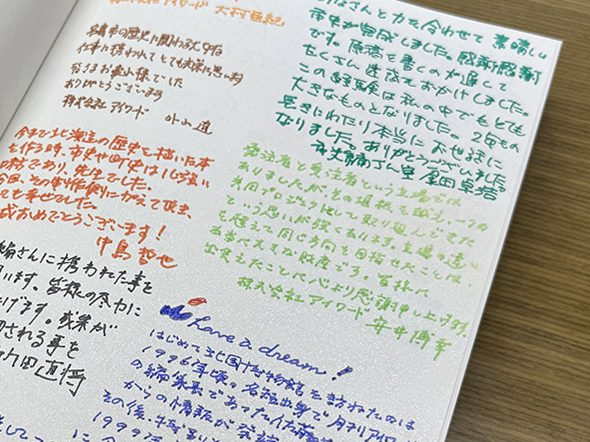 株式会社アイワード 大村亜紀
編市の歴史に関わる大切な
仕事に携われてとても光栄に思います
皆さまお疲れ様でした
ありがとうございます
株式会社 アイワード
今まで北海道の歴史を描いた本
を作る時、市史や町史は心強い
であり、先生でした。
今回、その制作側にかかえて頂き、
ても幸せでした。
成おめでとうございます!
中島 哲也
編さんに携われた事を
います。皆様の尽力に
げます。成果が
される事を
田直将
なさんと力を合わせて素晴しい
市史が完成しました。感謝感謝
です。原稿を書くのが遅くて
たくさん迷惑をおかけしました。
この経験は私の中でもとても
大きなものとなりました。2年もの
長きにわたり本当にお世話に
なりました。ありがとうございました。
発注者と受注者という立場では
ありましたが、その垣根を越え、一つの
共同プロジェクトとして取り組んできた
という思いが強くあります。立場の違い
を越えて同じ方向を目指せたことは、
皆様に
出会えたことに心より感謝申し上げます。
株式会社アイワード
have a dream!
はじめて北国博物館を訪ねたのは
1996年頃。名短出身で月刊
の編集長であった佐藤
からの情報が発端
その後、
1999年